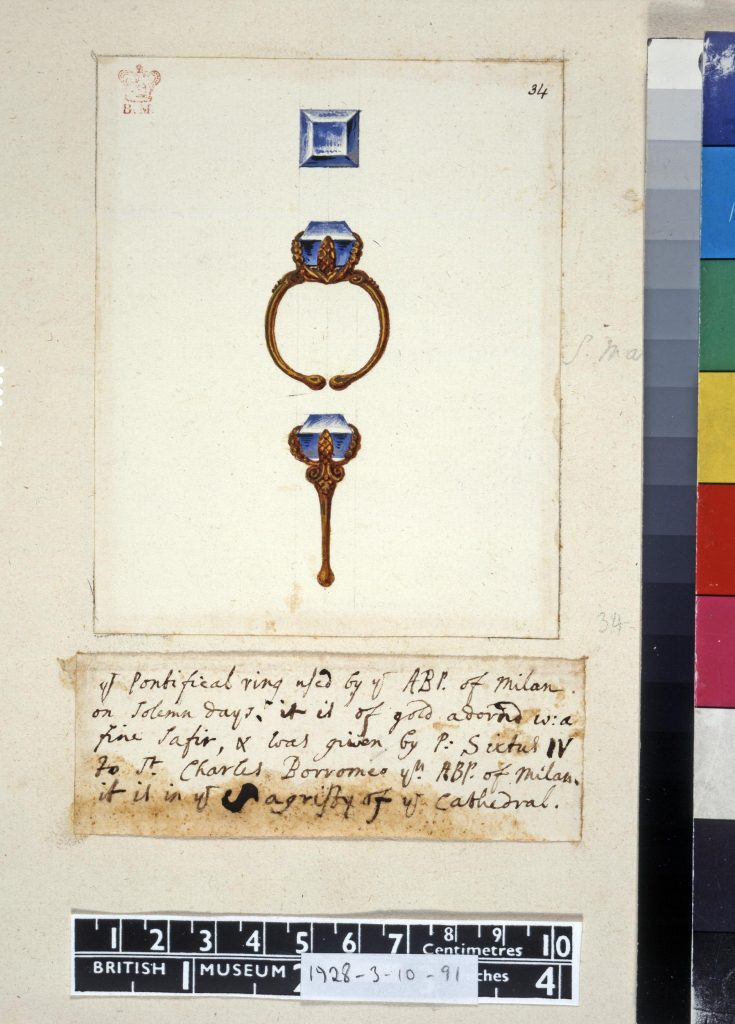 B.M.
34
S. Ma
34
yᵉ Pontifical ring used by yᵉ ABP. of Milan.
on Solemn days, it is of gold adornd w: a
fine Safir, & was given by P: Sixtus IV
to Sᵗ. Charles Borromeo yⁿ. ABP. of Milan.
it is in yᵉ Sagristy of yᵉ Cathedral.
1 2 3 4 5 6 7 8 9 10
Centimetres
BRITISH 1 MUSEUM 2 1928-3-10-91 ches 4